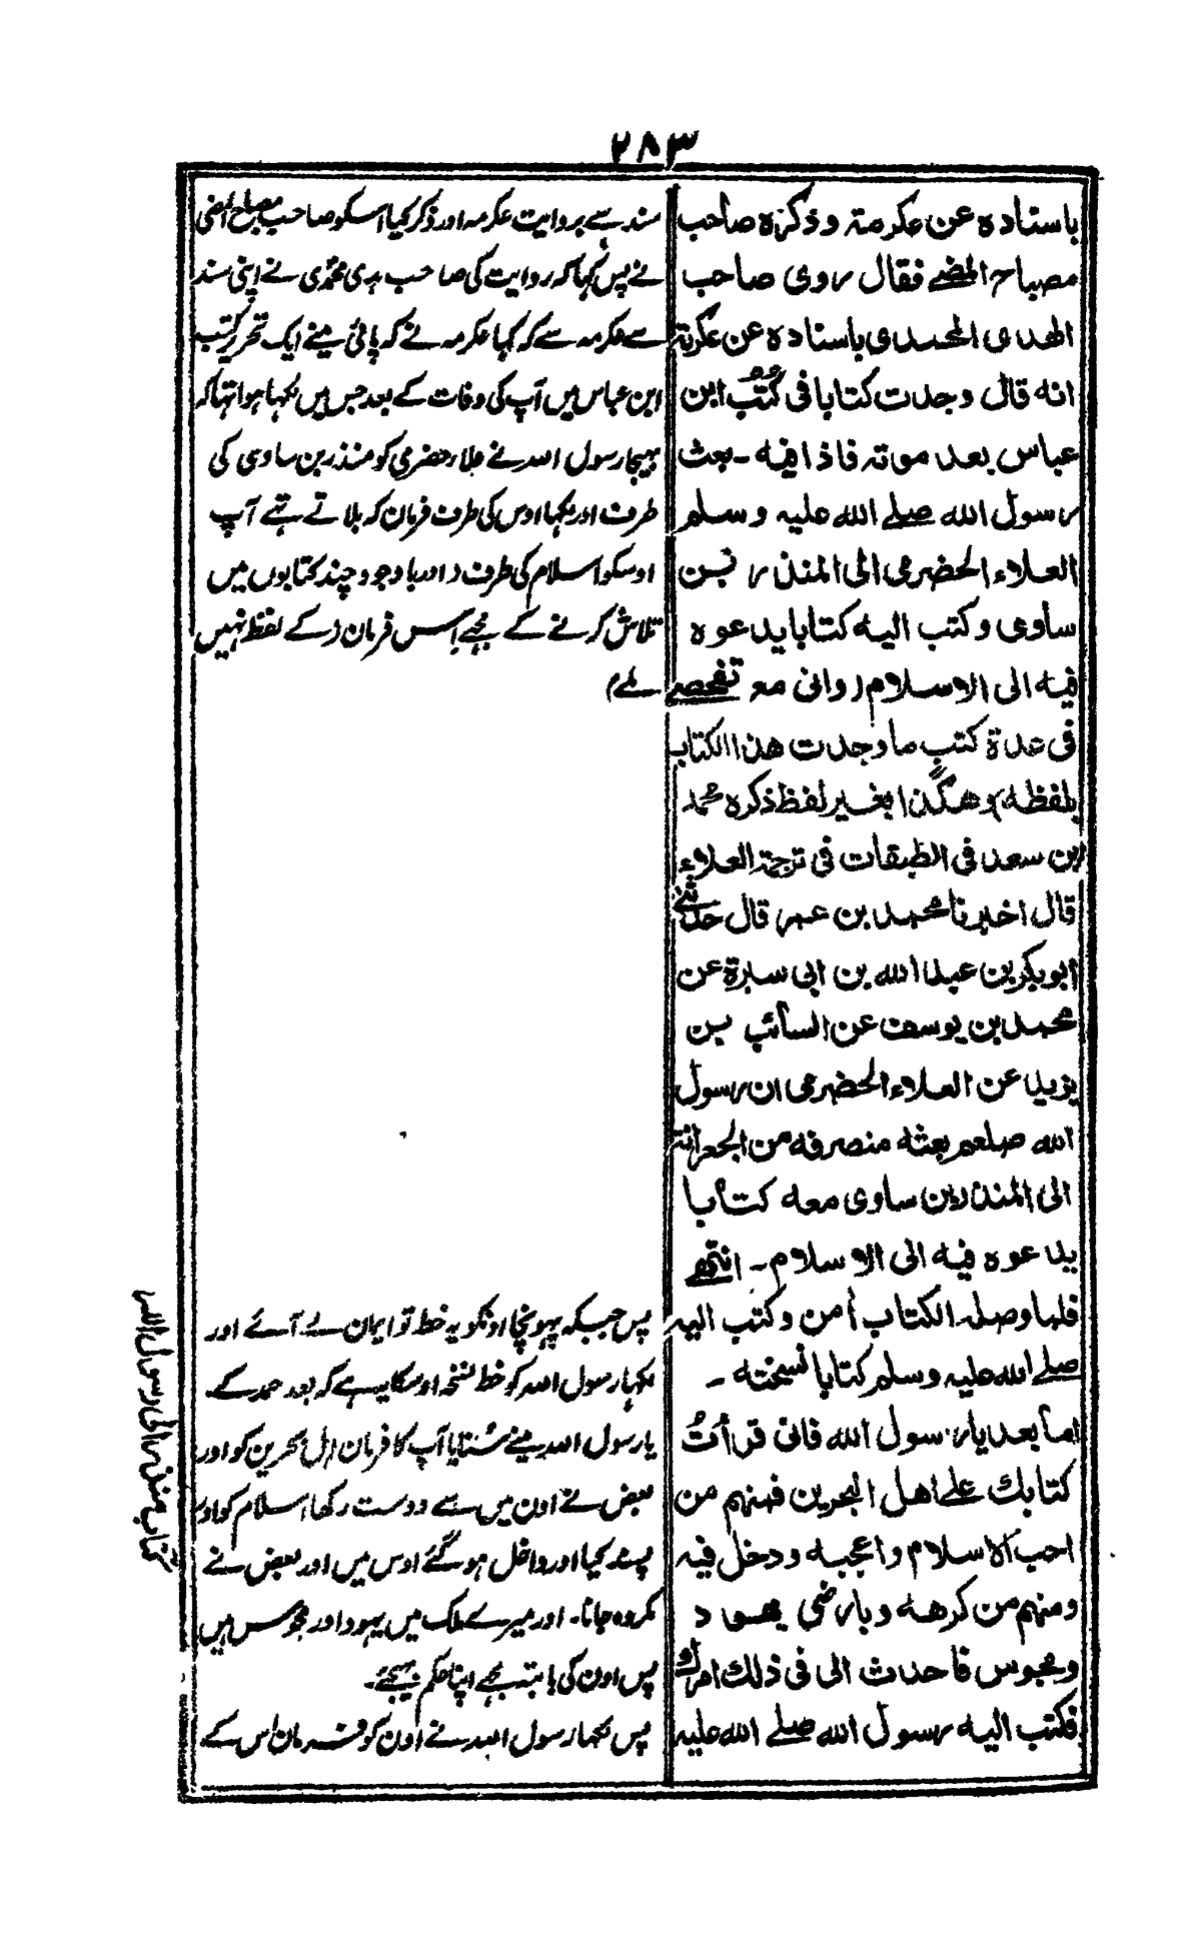 ٢٨٣
باسناده عن عكرمة وذكره صاحب
مصباح المضئ فقال روى صاحب
الهدى المحمدى باسناده عن عكرمة
انه قال وجدت كتابا فى كُتُب ابن
عباس بعد موته فاذا فيه ـ بعث
رسول الله صلے الله عليه وسلم
العلاء الحضرمى الى المنذر بن
ساوى وكتب اليه كتابا يدعوه
فيه الى الاسلام (وانى مع تفحصے
فى عدة كتب ما وجدت هذا الكتاب
بلفظه) وهكذا بغير لفظ ذكره محمد
ابن سعد فى الطبقات فى ترجمة العلاء
قال اخبرنا محمد بن عمر قال حدثنے
ابوبكر بن عبد الله بن ابى سبرة عن
محمد بن يوسف عن السائب بن
يزيد عن العلاء الحضرمى ان رسول
الله صلعم بعثه منصرفه من الجعرانة
الى المنذر بن ساوى معه كتابا
يدعوه فيه الى الاسلام ـ انتهے
فلما وصله الكتاب اٰمن وكتب اليه
صلے الله عليه وسلم كتابا نسخته ـ
اما بعد يا رسول الله فانى قرأتُ
كتابك علے اهل البحرين فمنهم من
احب الاسلام واعجبه ودخل فيه
ومنهم من كرهه وبارضى يهود
ومجوس فاحدث الى فى ذلك امرك
فكتب اليه رسول الله صلے الله عليه
سند سے بروایت عکرمہ اور ذکر کیا اسکو صاحب مصباح المضی
نے پس کہا کہ روایت کی صاحب ہدی محمدی نے اپنی سند
سے عکرمہ سے کہ کہا عکرمہ نے کہ پائی مینے ایک تحریر کتب
ابن عباس میں آپ کی وفات کے بعد جس میں لکہا ہوا تہا کہ
بہیجا رسول اللہ نے علاء حضرمی کو منذر بن ساوی کی
طرف اور لکہا اوس کی طرف فرمان کہ بلاتے تہے آپ
اوسکو اسلام کی طرف (اور باوجود چند کتابوں میں
تلاش کرنے کے مجہے اس فرمان کے لفظ نہیں
ملے)
پس جبکہ پہونچا اونکو یہ خط تو ایمان لے آئے اور
لکہا رسول اللہ کو خط نسخہ اوسکا یہ ہے کہ بعد حمد کے
یا رسول اللہ مینے سُنایا آپ کا فرمان اہل بحرین کو اور
بعض نے اون میں سے دوست رکہا اسلام کو اور
پسند کیا اور داخل ہو گئے اوس میں اور بعض نے
مکروہ جانا۔ اور میرے ملک میں یہود اور مجوس ہیں
پس اون کی بابت مجہے اپنا حکم بہیجئے۔
پس لکہا رسول اللہ نے اون کو فرمان اس کے
كتاب منذر الى رسول الله